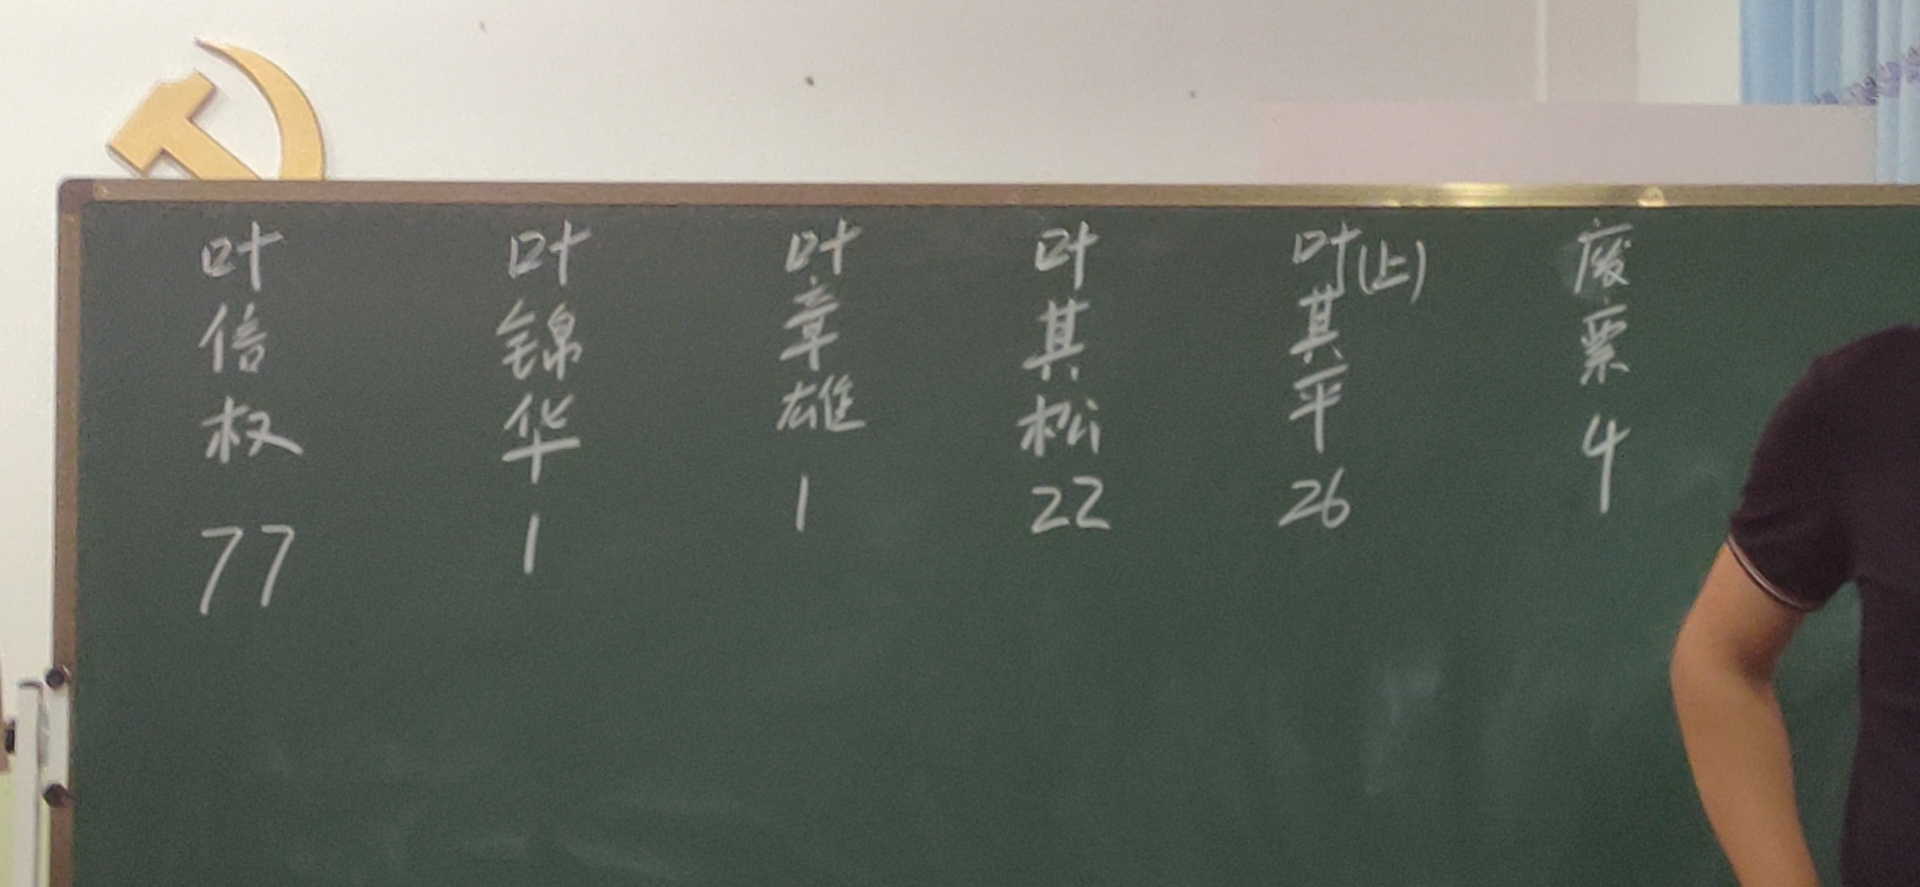 叶信权 77
叶锦华 1
叶章雄 1
叶其松 22
叶(上)其平 26
废票 4